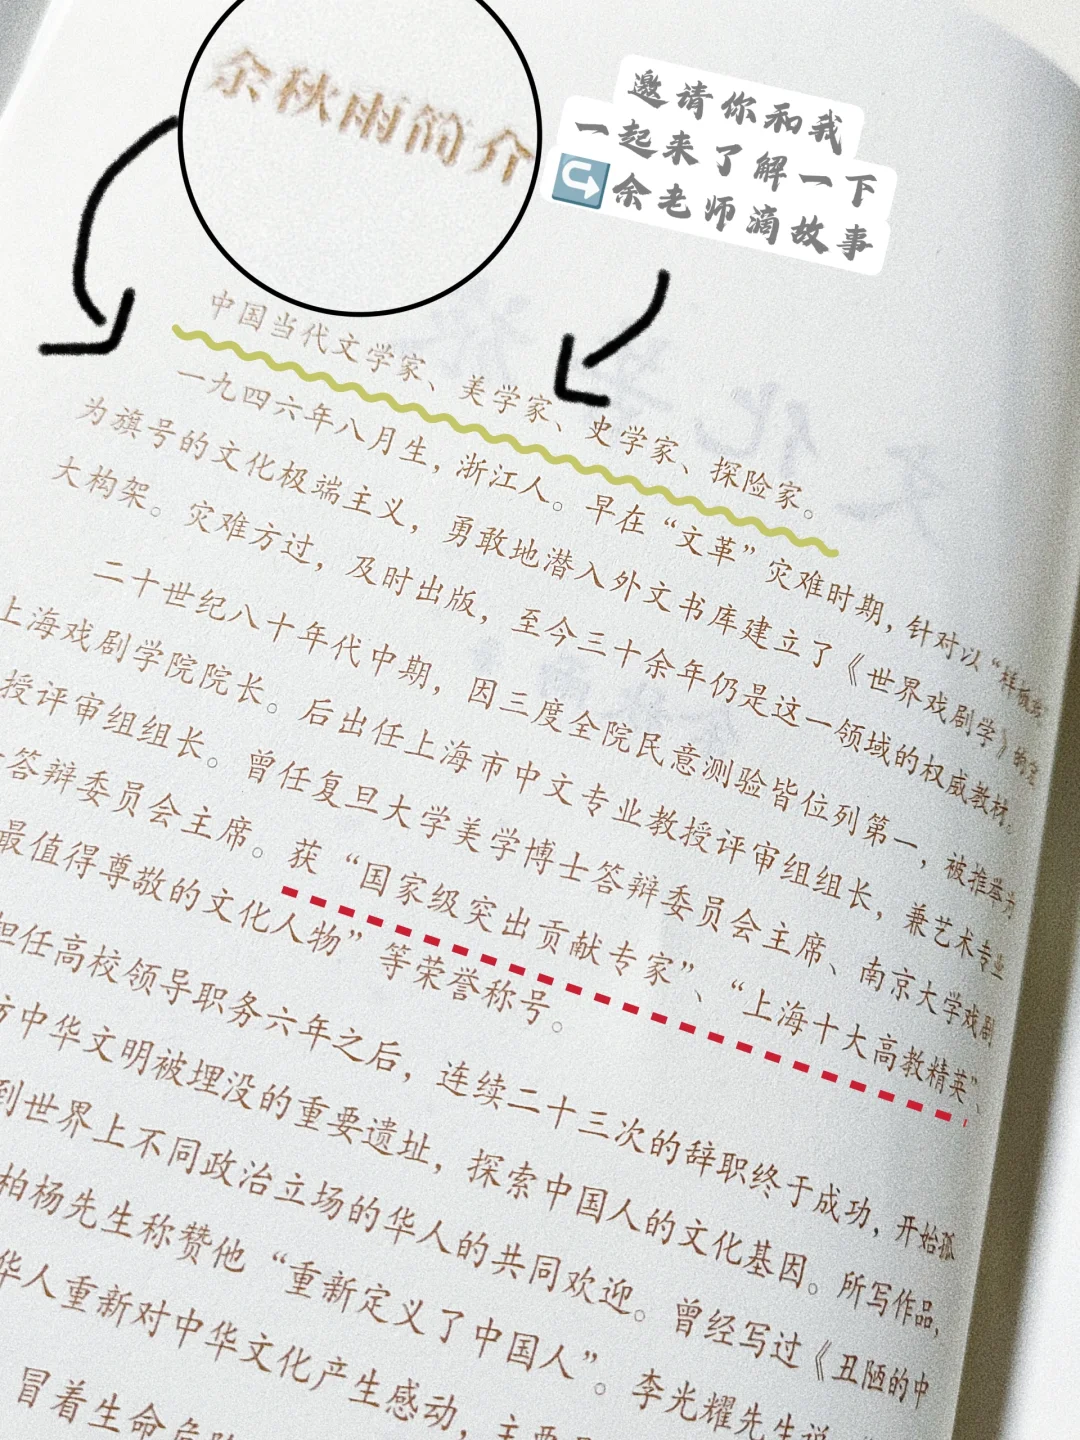 余秋雨简介
邀请你和我
一起来了解一下
↪余老师滴故事
中国当代文学家、美学家、史学家、探险家。
一九四六年八月生，浙江人。早在“文革”灾难时期，针对以“样板戏
为旗号的文化极端主义，勇敢地潜入外文书库建立了《世界戏剧学》的宏
大构架。灾难方过，及时出版，至今三十余年仍是这一领域的权威教材。
二十世纪八十年代中期，因三度全院民意测验皆位列第一，被推举为
上海戏剧学院院长。后出任上海市中文专业教授评审组组长，兼艺术专业
授评审组组长。曾任复旦大学美学博士答辩委员会主席、南京大学戏剧
答辩委员会主席。获“国家级突出贡献专家”、“上海十大高教精英”、
最值得尊敬的文化人物”等荣誉称号。
担任高校领导职务六年之后，连续二十三次的辞职终于成功，开始孤
访中华文明被埋没的重要遗址，探索中国人的文化基因。所写作品，
到世界上不同政治立场的华人的共同欢迎。曾经写过《丑陋的中
柏杨先生称赞他“重新定义了中国人”。李光耀先生说
华人重新对中华文化产生感动，主要
冒着生命危险